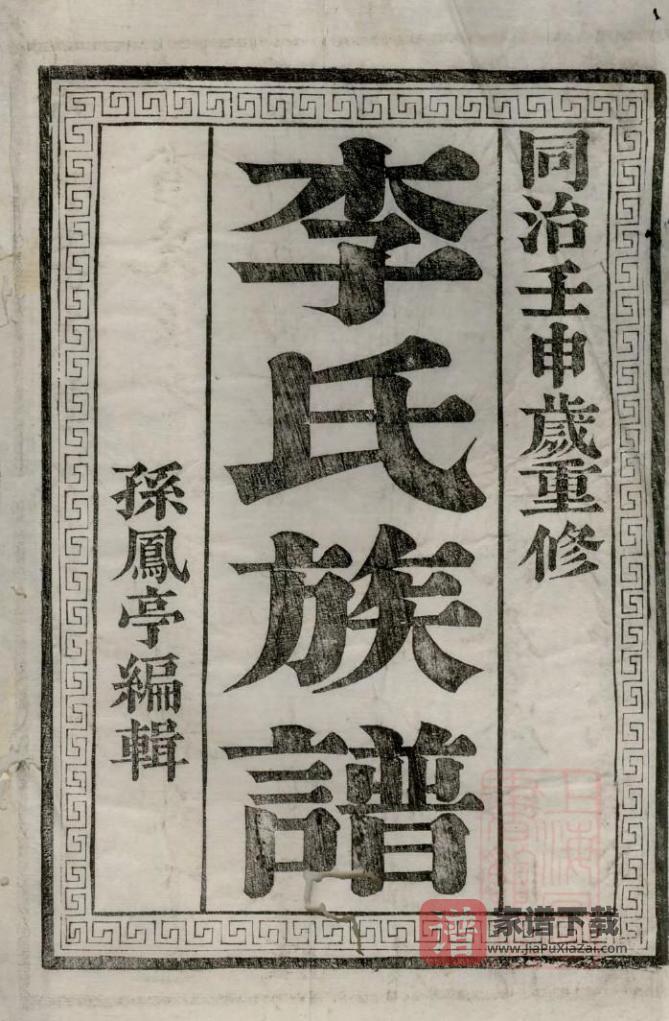 同治壬申歲重修
李氏族譜
孫鳳亭編輯
家谱下载
www.jiaPuXiaZai.com